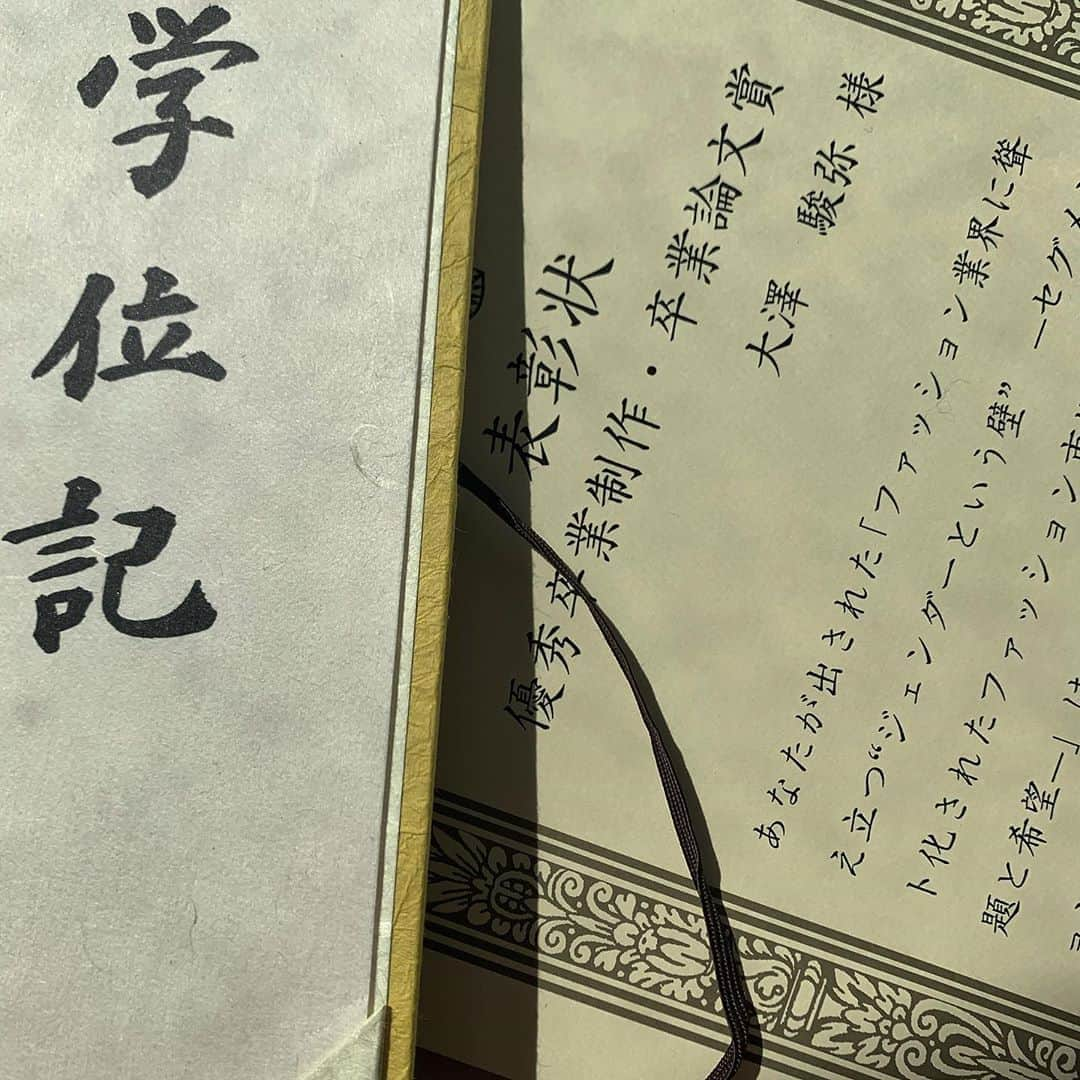 学位記
表彰状
優秀卒業制作・卒業論文賞
大澤 駿弥 様
あなたが出された「ファッション業界に聳
え立つ“ジェンダーという壁” ―セグメン
ト化されたファッション市
題と希望―」は